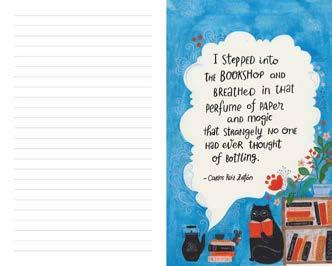 I STEPPED into
THE BOOKSHOP AND
BREATHED IN THAT
PERFUME OF PAPER
and magic
that strangely NO ONE
HAD EVER THOUGHT
OF BOTTLING.
- Carlos Ruiz Zafón